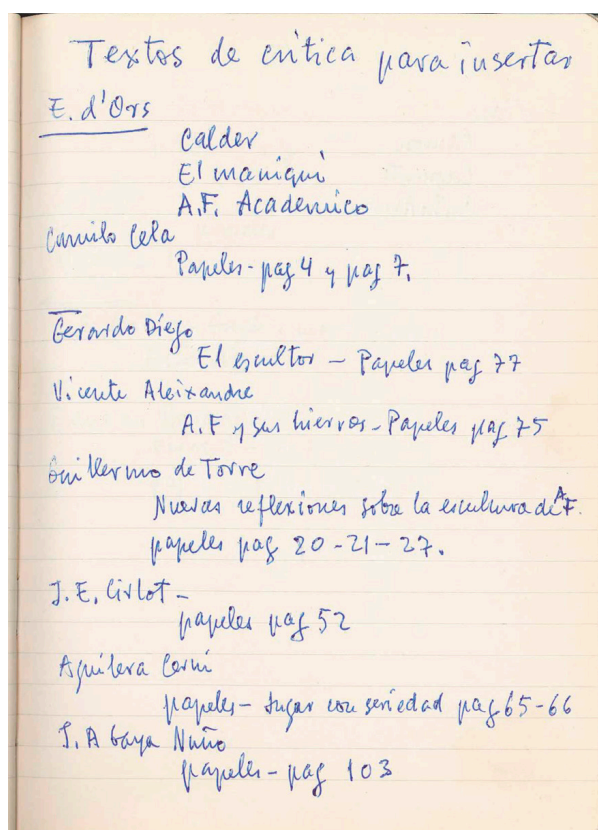 Textos de crítica para insertar
E. d'Ors
Calder
El maniquí
A.F. Academico
Camilo Cela
Papeles - pag 4 y pag 7.
Gerardo Diego
El escultor - Papeles pag 77
Vicente Aleixandre
A.F y sus hierros - Papeles pag 75
Guillermo de Torre
Nuevas reflexiones sobre la escultura de A F.
papeles pag 20-21-27.
J.E. Cirlot -
papeles pag 52
Aguilera Cerni
papeles - Jugar con seriedad pag 65-66
J.A Gaya Nuño
papeles - pag 103